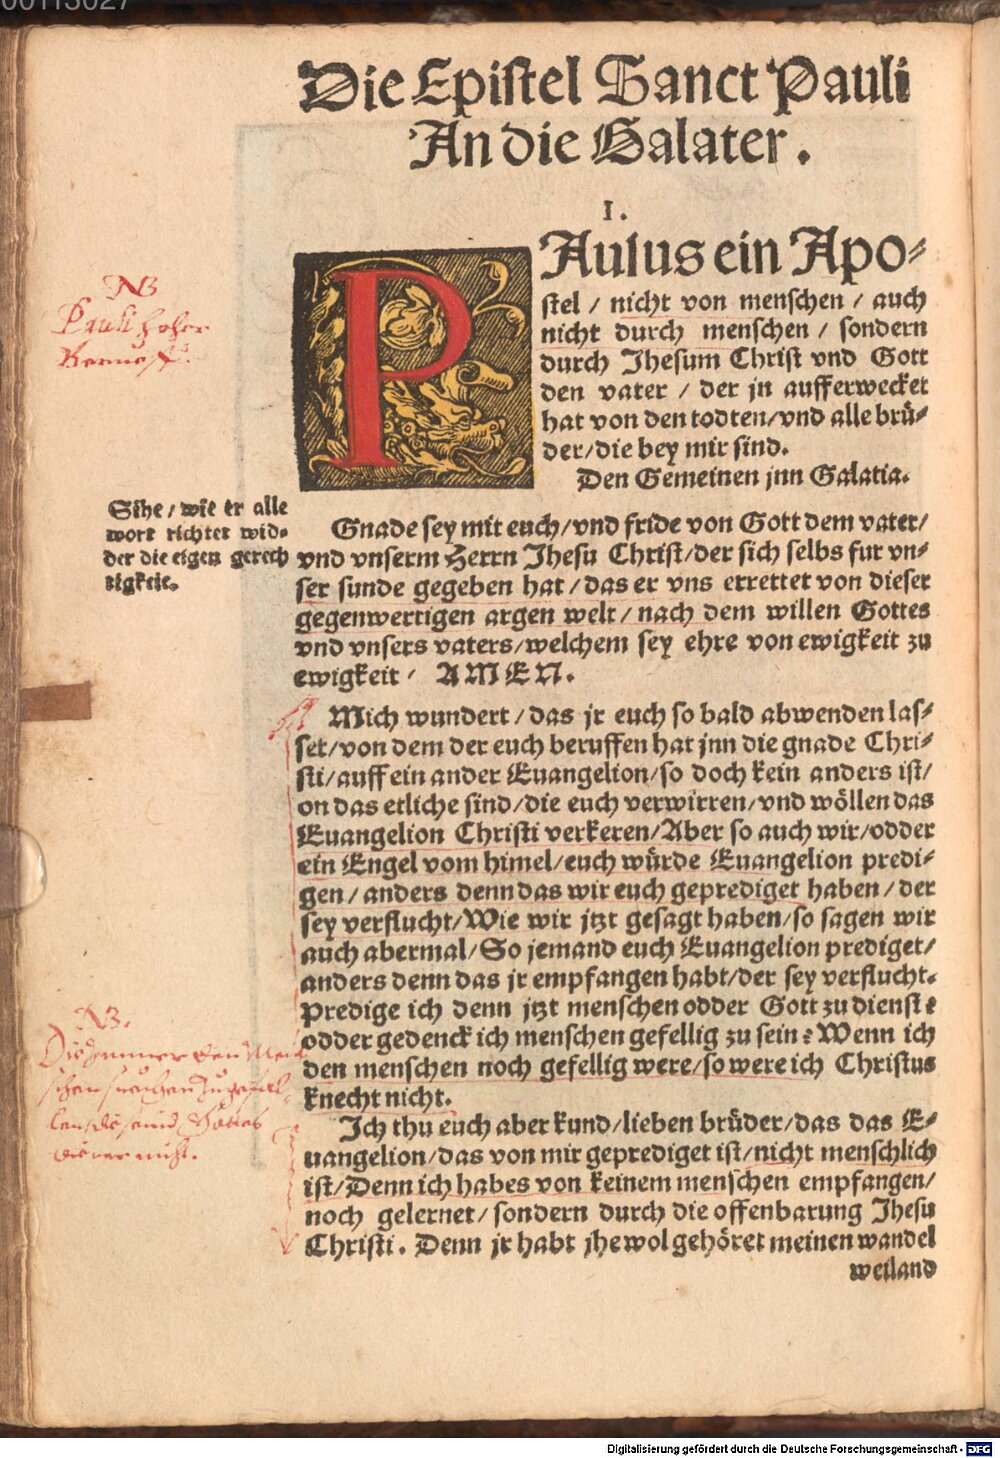 00113027
Die Epistel Sanct Pauli
An die Galater.
I.
PAulus ein Apo⸗
stel / nicht von menschen / auch
nicht durch menschen / sondern
durch Jhesum Christ vnd Gott
den vater / der jn aufferwecket
hat von den todten/vnd alle brü⸗
der/die bey mir sind.
Den Gemeinen jnn Galatia.
Gnade sey mit euch/vnd fride von Gott dem vater/
vnd vnserm Herrn Jhesu Christ/der sich selbs fur vn⸗
ser sunde gegeben hat/das er vns errettet von dieser
gegenwertigen argen welt/nach dem willen Gottes
vnd vnsers vaters/welchem sey ehre von ewigkeit zu
ewigkeit / AMEN.
Mich wundert/das jr euch so bald abwenden las⸗
set/von dem der euch beruffen hat jnn die gnade Chri⸗
sti/auff ein ander Euangelion/so doch kein anders ist/
on das etliche sind/die euch verwirren/vnd wöllen das
Euangelion Christi verkeren/Aber so auch wir/odder
ein Engel vom himel/euch würde Euangelion predi⸗
gen/anders denn das wir euch geprediget haben/der
sey verflucht/Wie wir jtzt gesagt haben/so sagen wir
auch abermal/So jemand euch Euangelion prediget/
anders denn das jr empfangen habt/der sey verflucht.
Predige ich denn jtzt menschen odder Gott zu dienst?
odder gedenck ich menschen gefellig zu sein? Wenn ich
den menschen noch gefellig were/so were ich Christus
knecht nicht.
Ich thu euch aber kund/lieben brüder/das das E⸗
uangelion/das von mir geprediget ist/nicht menschlich
ist/Denn ich habes von keinem menschen empfangen/
noch gelernet/sondern durch die offenbarung Jhesu
Christi. Denn jr habt jhe wol gehöret meinen wandel
weiland
NB
Pauli hoher
Sihe/wie er alle
wort richtet wid⸗
der die eigen gerech
tigkeit.
NB.
nicht.
Digitalisierung gefördert durch die Deutsche Forschungsgemeinschaft - DFG